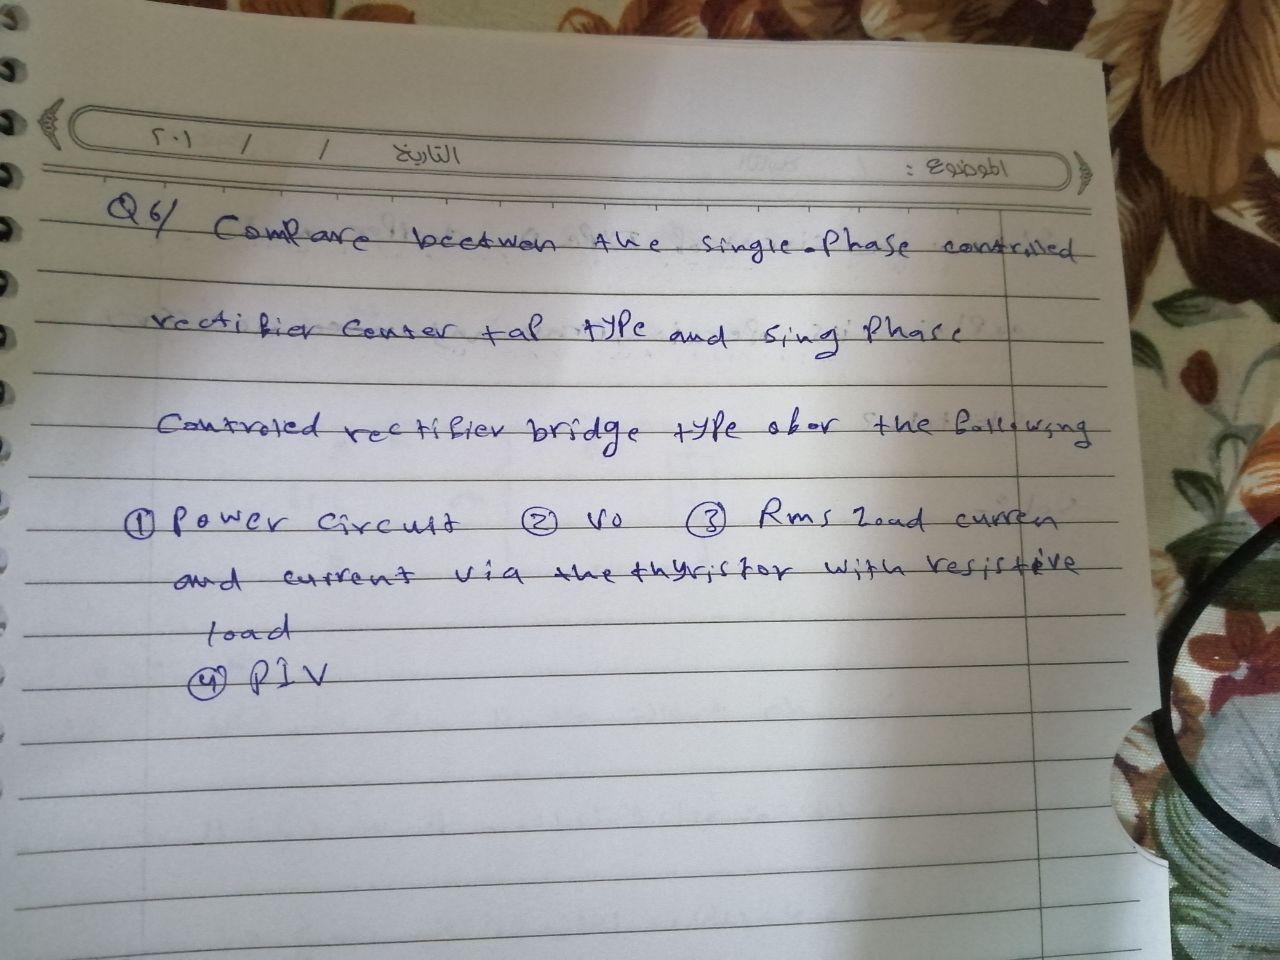 الموضوع : التاريخ / / ٢٠١
Q6/ Compare beetwen the single-phase controlled
rectifier Center tap type and sing phase
Controled rectifier bridge type ofor the following
① Power circuit ② Vo ③ Rms load curren
and current via the thyristor with resistive
load
④ PIV